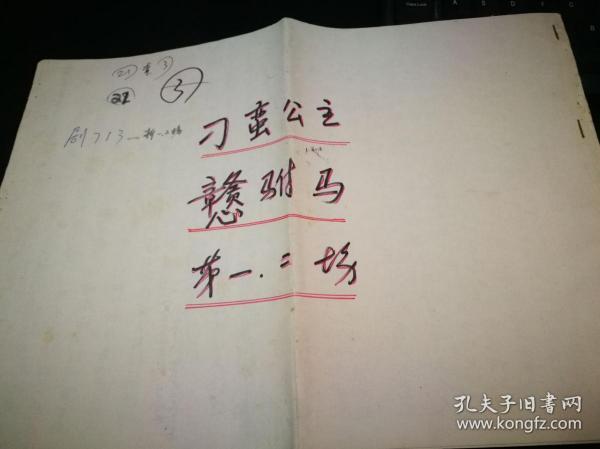 21 袋 3
22 3
剧713
刁蛮公主
戆驸马
第一.二场
孔夫子旧书网
www.kongfz.com